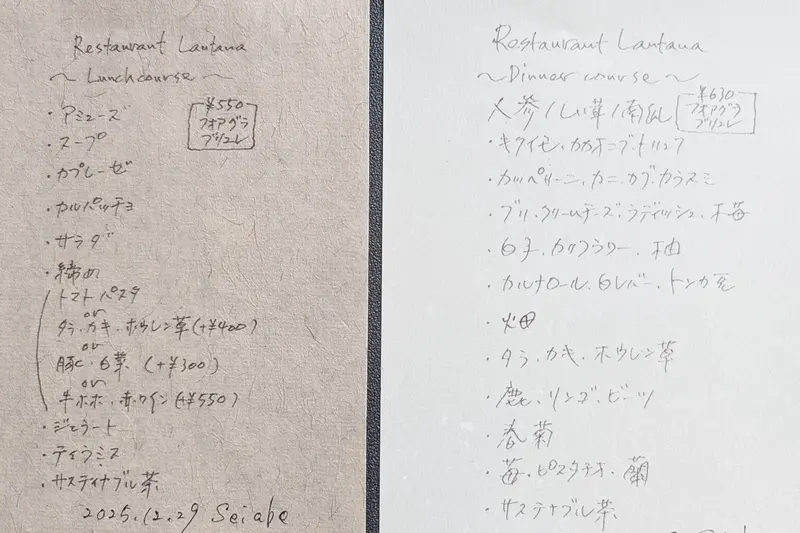 Restaurant Lantana
~ Lunchcourse ~
¥550
フォアグラ
ブリュレ
・アミューズ
・スープ
・カプレーゼ
・カルパッチョ
・サラダ
・締め
トマトパスタ
or
タラ、カキ、ホウレン草(+¥400)
or
豚ヒ・白菜 (+¥300)
or
牛ホホ・赤ワイン(+¥550)
・ジェラート
・ティラミス
・サスティナブル茶
2025.12.29 Seiabe
Restaurant Lantana
~Dinner course ~
¥630
フォアグラ
ブリュレ
人参/しい茸/南瓜
・キクイモ、カカオニブ、トリュフ
・カッペリーニ、カニ、カブ、カラスミ
・ブリ、クリームチーズ、ラディッシュ、木苺
・白子、カリフラワー、柚
・カルナローリ、白レバー、トンカ豆
・畑
・タラ、カキ、ホウレン草
・鹿、リンゴ、ビーツ
・春菊
・苺、ピスタチオ、蘭
・サステナブル茶